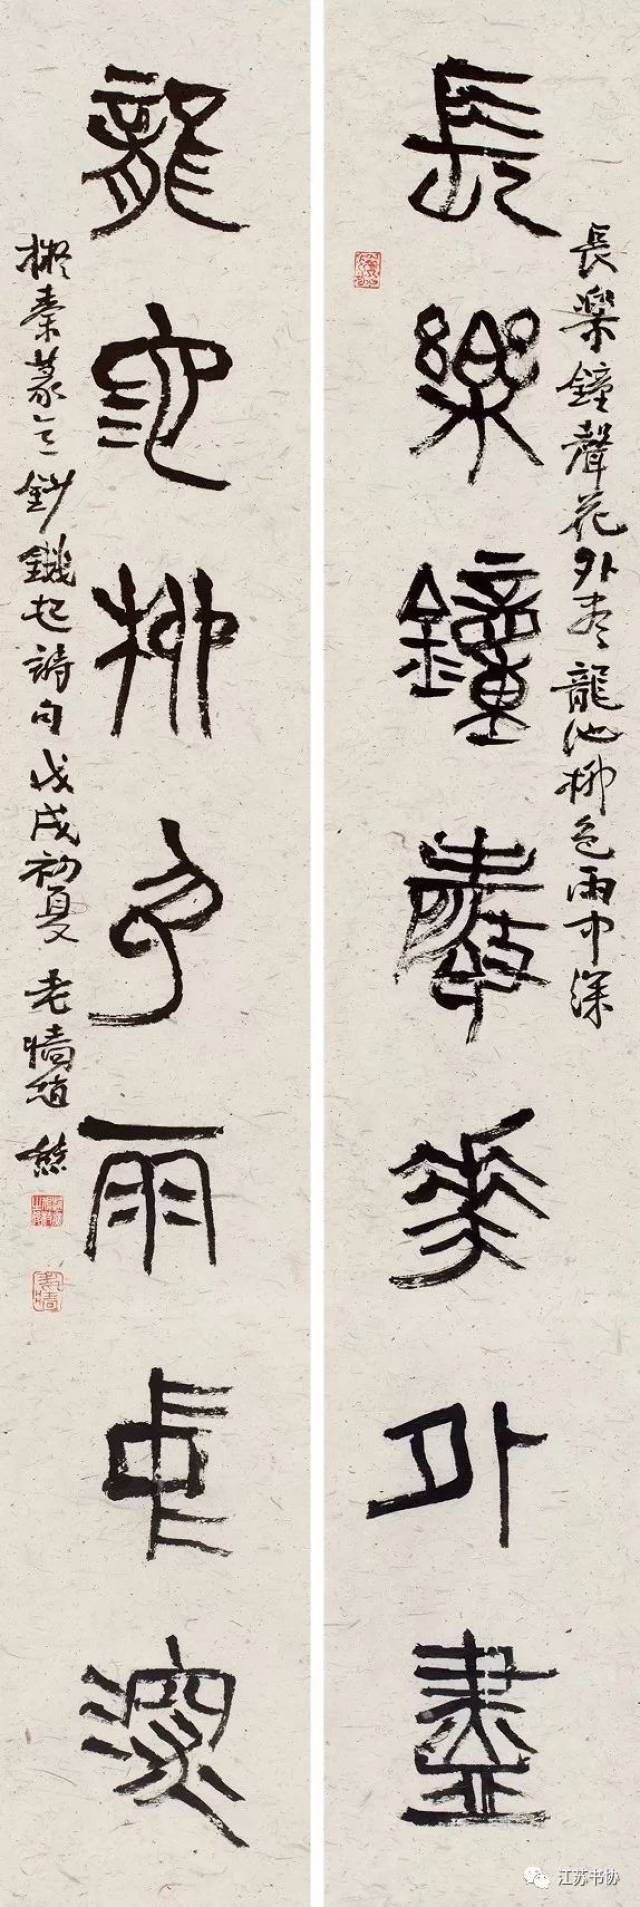 長樂鐘聲花外盡龍池柳色雨中深
長樂鐘聲花外盡
龍池柳色雨中深
擬秦篆意鈔錢起詩句戊戌初夏老牆趙熊
江苏书协